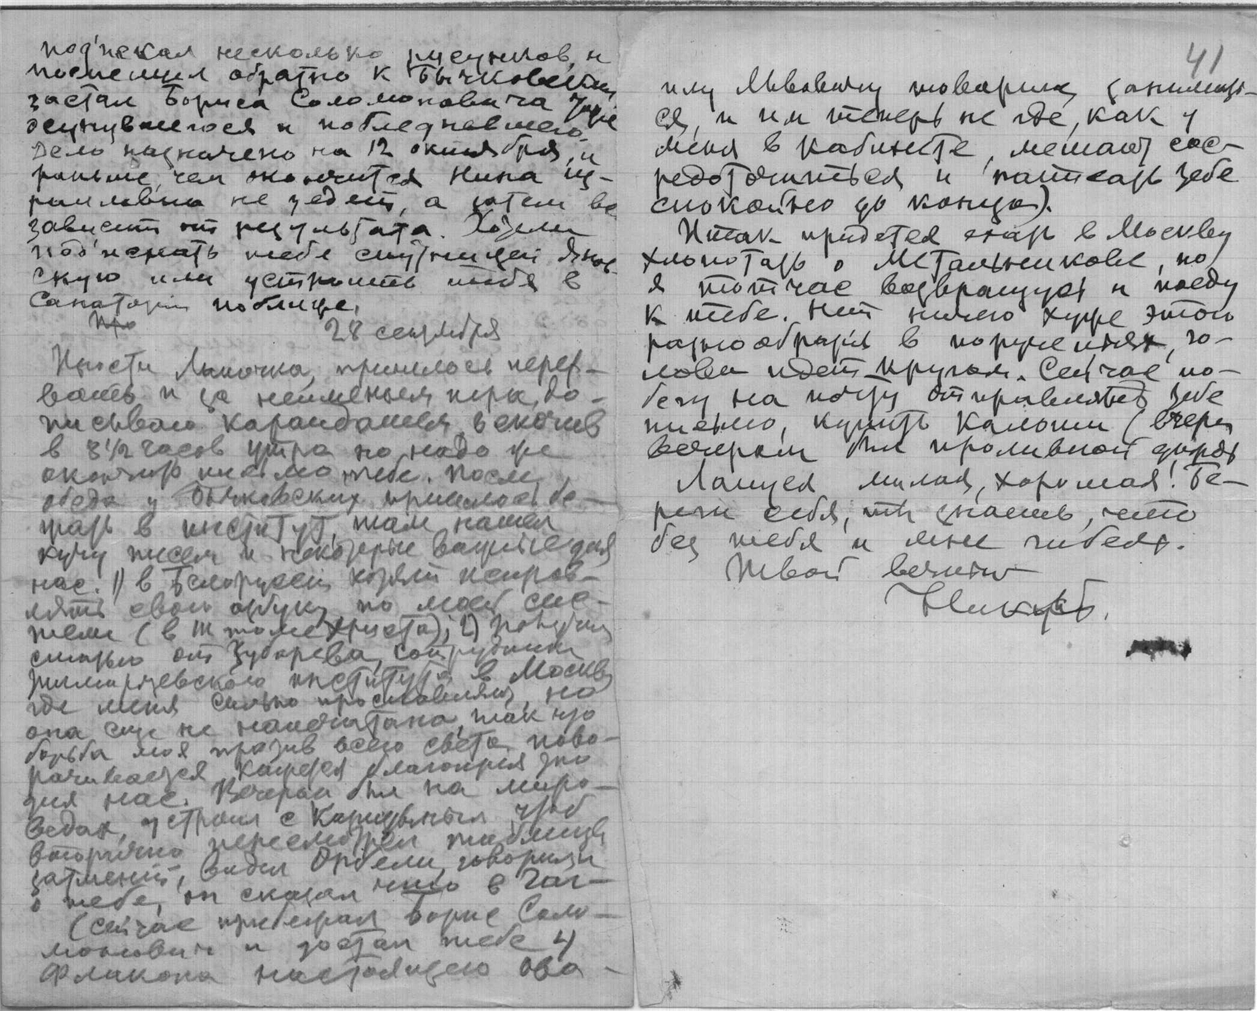 под'искал несколько рисунков, и
поспешил обратно к Бычковским
застал Бориса Соломоновича уже
осунувшегося и побледневшего.
Дело назначено на 12 октября, и
раньше, чем окончится Нина Из-
раилевна не уедет, а затем все
зависит от результата. Хотели
под'искать тебе спутницей Янов-
скую или устроить тебя в
Санатории поближе.
28 сентября
Прости Лялочка, пришлось перер-
вать и за неименьем пера, до-
писываю карандашем вскочив
в 3 1/2 часов утра но надо же
окончить письмо тебе. После
обеда у Бычковских пришлось бе-
жать в институт, там нашел
кучу писем и некоторые важные для
нас. 1) в Белоруссии хотят исправ-
лять свою азбуку по моей сис-
теме (в III томе Христа); 2) получил
статью от Зубарева, сотрудника
Тимирязевского института в Москве
где меня сильно прославляют, но
она еще не напечатана, так что
борьба моя против всего света пово-
рачивается кажется благоприятно
для нас. Вечером был на миро-
ведах, устроил с Каменьщиковым, чтоб
вторично пересмотрел таблицы
затмений, видел Орбели, говорили
о тебе, он сказал что в Гаг-
(сейчас прибежал Борис Соло-
монович и достал тебе 4
флакона настоящего ова-
41
илу Львовичу товарищ занимает-
ся, и им теперь не где, как у
меня в кабинете, мешают сос-
редоточиться и писать тебе
спокойно до конца).
Итак придется ехать в Москву
хлопотать о Метальникове, но
я тотчас возвращусь и поеду
к тебе. Нет ничего хуже этого
разнообразия в поручениях, го-
лова идет кругом. Сейчас по-
бегу на почту отправлять тебе
письмо, купить калоши (вчера
вечером был проливной дождь
Лапуся милая, хорошая! Бе-
реги себя, ты знаешь, что
без тебя и мне гибель.
Твой вечно